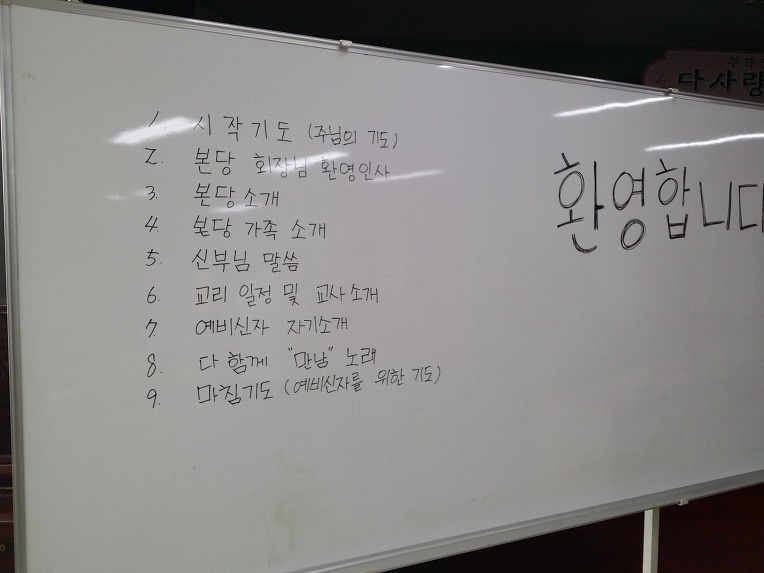 1. 시작기도 (주님의 기도)
2. 본당 회장님 환영인사
3. 본당소개
4. 본당 가족 소개
5. 신부님 말씀
6. 교리 일정 및 교사소개
7. 예비신자 자기소개
8. 다함께 "만남" 노래
9. 마침기도 (예비신자를 위한 기도)
환영합니다
다사랑